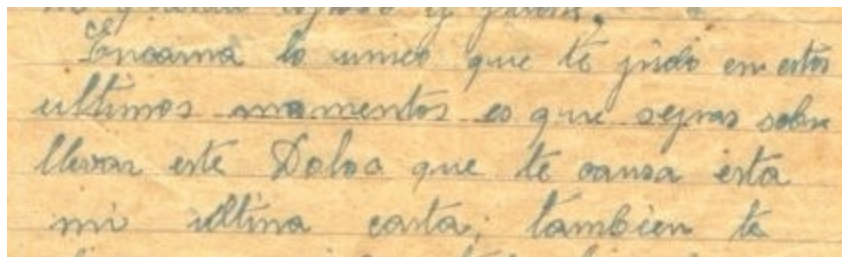 Encarna lo unico que te pido en estos
ultimos momentos es que sepas sobre
llevar este Dolor que te causa esta
mi ultima carta; tambien te